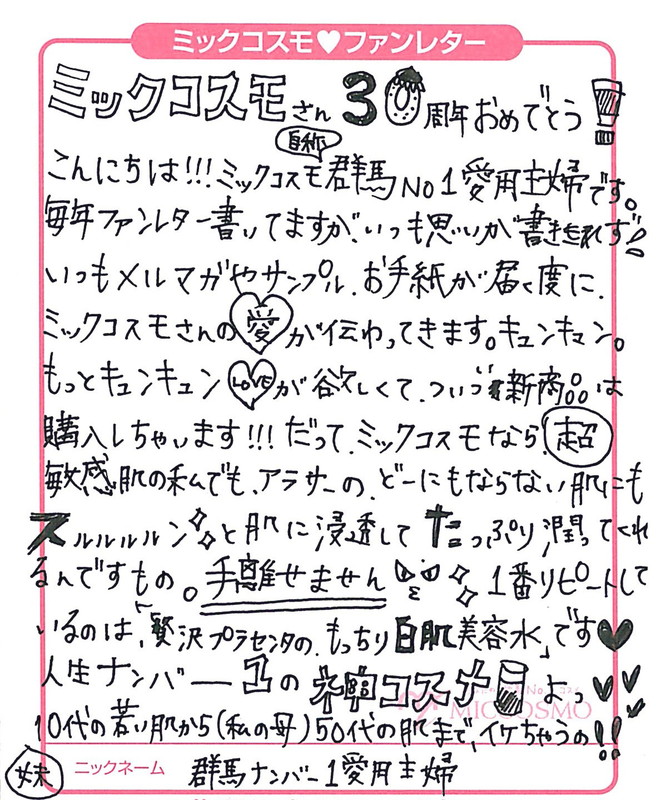 ミックコスモ♥ファンレター
ミックコスモさん30周年おめでとう!
自称
こんにちは!!!ミックコスモ群馬No1愛用主婦です。
毎年ファンレター書いてますが、いつも思いが書き忘れず!!
いつもメルマガやサンプル、お手紙が届く度に、
ミックコスモさんの愛が伝わってきます。キュンキュン。
もっとキュンキュンLOVEが欲しくて、ついつい新商品は
購入しちゃいます!!!だって、ミックコスモなら超
敏感肌の私でも、アラサーの、どーにもならない肌にも
スルルルルンと肌に浸透してたっぷり潤ってくれ
るんですもの。手離せません 1番リピートして
いるのは、「贅沢プラセンタの、もっちり白肌美容水」です♥
人生ナンバー1の神コスメよ♥♥♥
10代の若い肌から(私の母)50代の肌まで、イケちゃうの!!
妹
ニックネーム 群馬ナンバー1愛用主婦
MICCOSMO